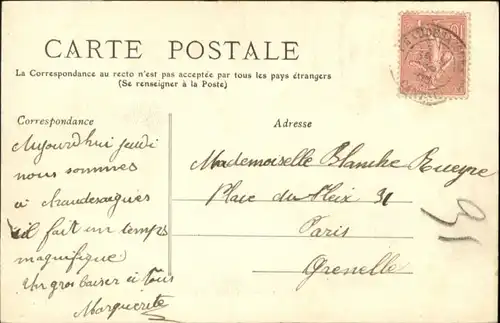 CARTE POSTALE
La Correspondance au recto n'est pas acceptée par tous les pays étrangers
(Se renseigner à la Poste)
Correspondance
Adresse
Aujourd'hui jeudi
nous sommes
a chaudesaigues
il fait un temps
magnifique
Un gros baiser à tous
Marguerite
Mademoiselle Blanche
Place du 31
Paris
Grenelle
10